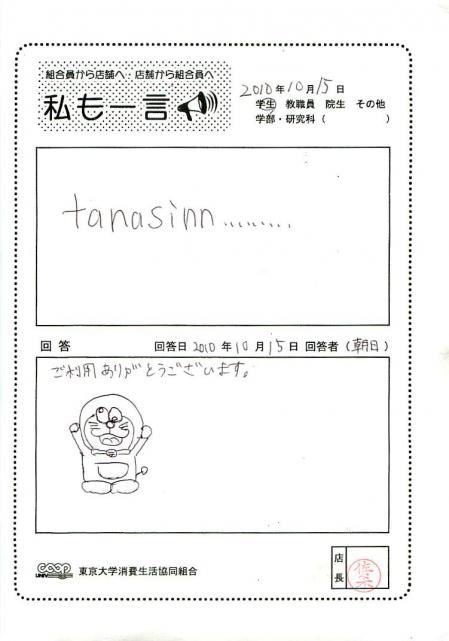 組合員から店舗へ・店舗から組合員へ
私も一言
2010年10月15日
学生 教職員 院生 その他
学部・研究科( )
tanasinn.........
回答 回答日2010年10月15日 回答者(朝日)
ご利用ありがとうございます。
UNIV COOP 東京大学消費生活協同組合
店長